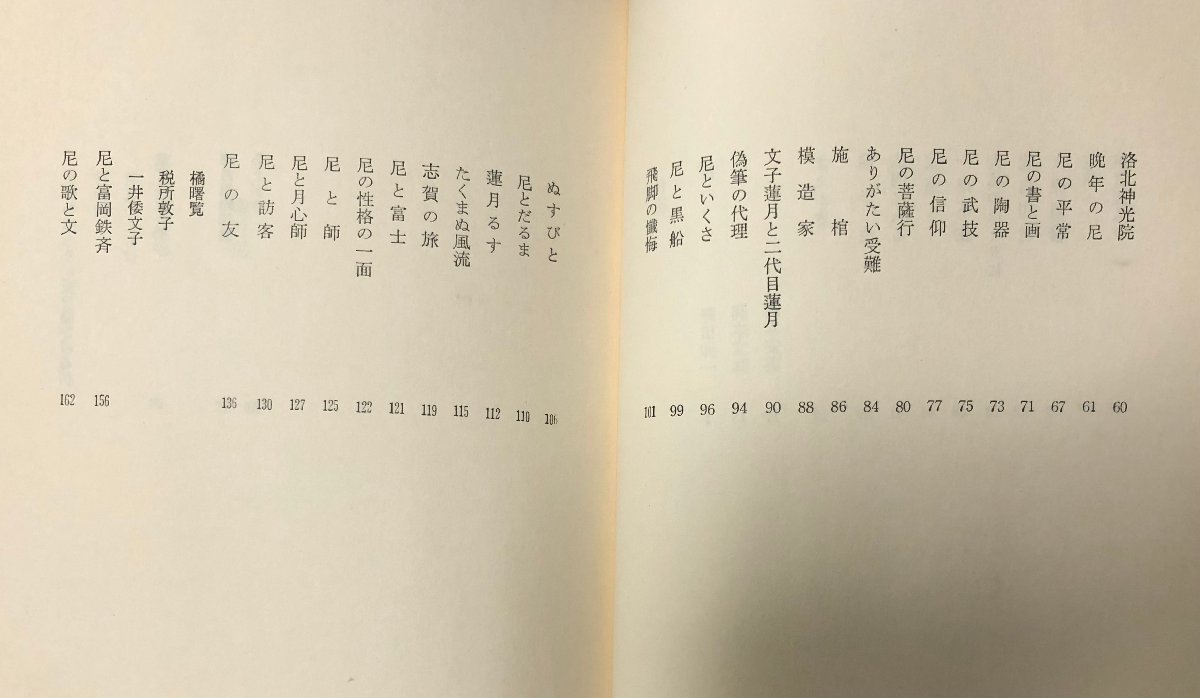 洛北神光院 60
晩年の尼 61
尼の平常 67
尼の書と画 71
尼の陶器 73
尼の武技 75
尼の信仰 77
尼の菩薩行 80
ありがたい受難 84
施棺 86
模造家 88
文子蓮月と二代目蓮月 90
偽筆の代理 94
尼といくさ 96
尼と黒船 99
飛脚の懺悔 101
ぬすびと 106
尼とだるま 110
蓮月るす 112
たくまぬ風流 115
志賀の旅 119
尼と富士 121
尼の性格の一面 122
尼と師 125
尼と月心師 127
尼と訪客 130
尼の友 136
橘曙覧
税所敦子
一井倭文子
尼と富岡鉄斉 156
尼の歌と文 162